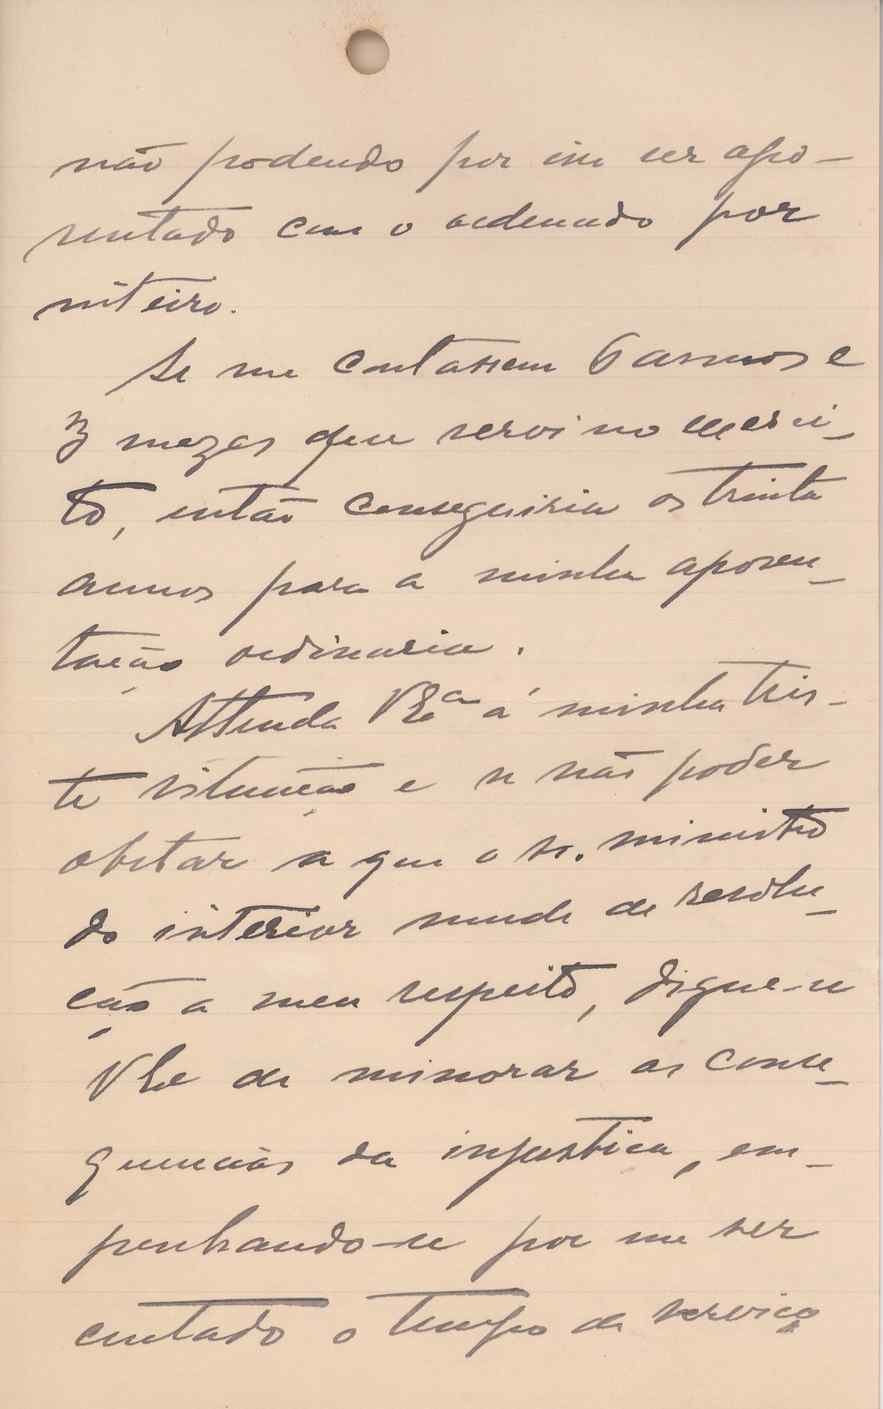 não podendo por isso ser apo-
sentado com o ordenado por
inteiro.
Se me contassem 6 annos e
3 mezes que servi no exerci-
to, então conseguiria os trinta
annos para a minha aposen-
tação ordinaria.
Attenda VExª á minha tris-
te situação e se não poder
obstar a que o sr. ministro
do interior mude de resolu-
ção a meu respeito, digne-se
VEx de minorar as conse-
quencias da injustiça, em-
penhando-se por me ser
contado o tempo de serviço